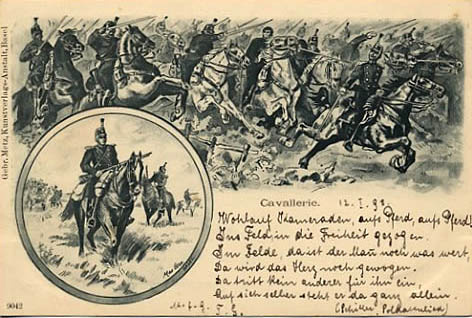 Gebr. Metz, Kunstverlags-Anstalt, Basel
Cavallerie. 12. I. 98
Wohlauf Kameraden, aufs Pferd, aufs Pferd!
Ins Feld, in die Freiheit gezogen.
Im Felde, da ist der Mann noch was wert,
Da wird das Herz noch gewogen.
Da tritt kein anderer für ihn ein,
Auf sich selber steht er da ganz allein.
(Schiller,
9042